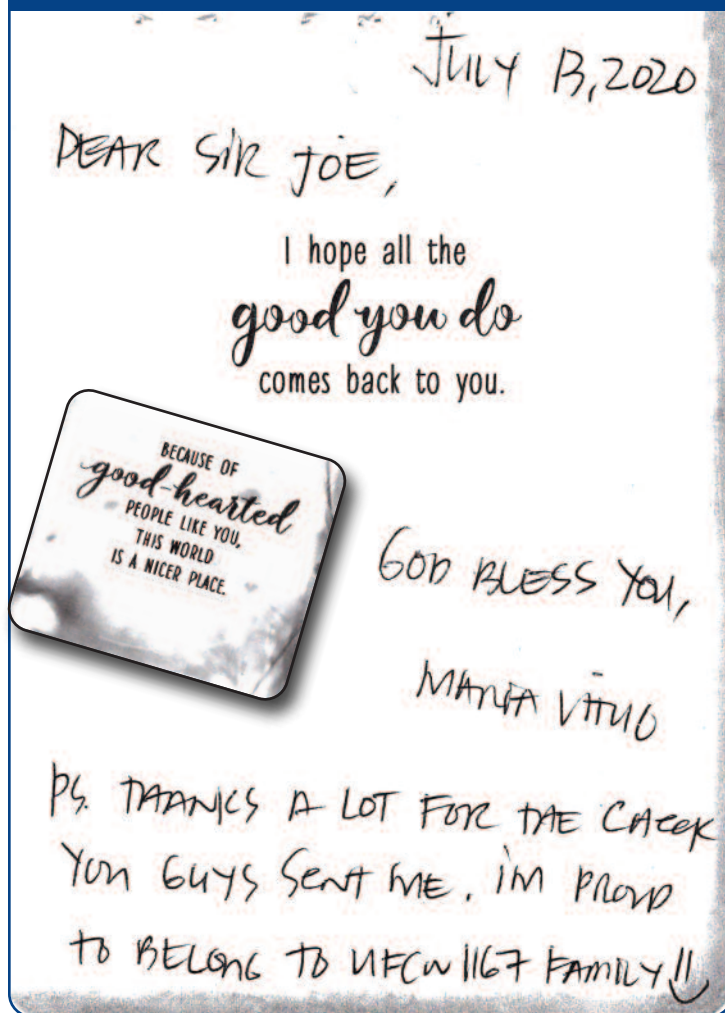 JULY 13, 2020
DEAR SIR JOE,
I hope all the
good you do
comes back to you.
BECAUSE OF
good-hearted
PEOPLE LIKE YOU,
THIS WORLD
IS A NICER PLACE.
GOD BLESS YOU,
MARIA
PS. THANKS A LOT FOR THE CHECK
YOU GUYS SENT ME. I'M PROUD
TO BELONG TO UFCW 1167 FAMILY!!